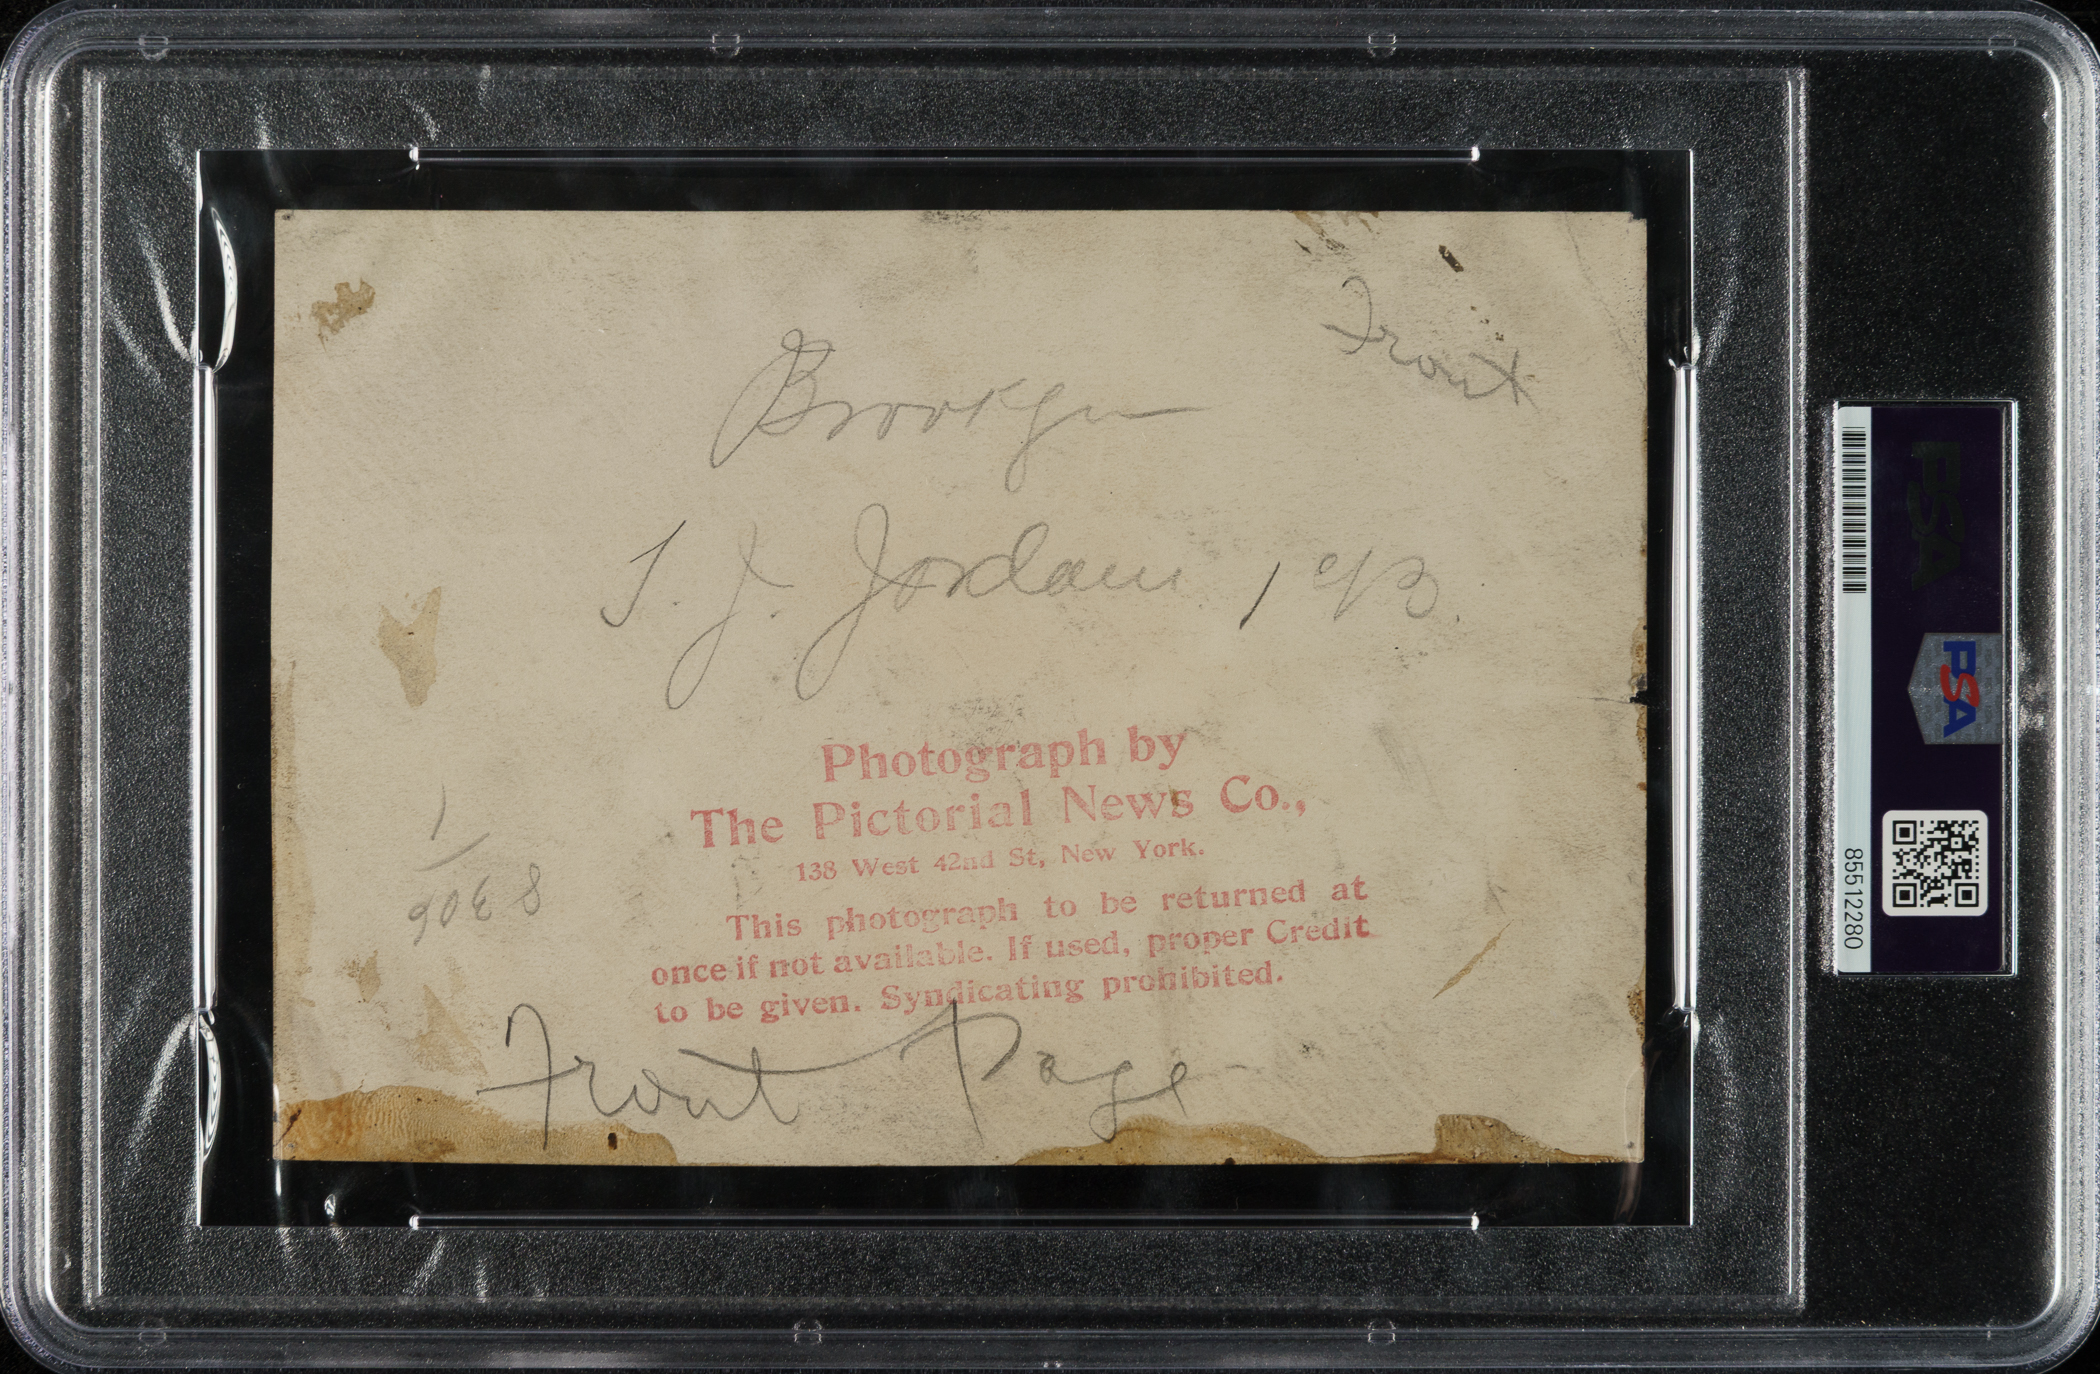 Front
Brooklyn
T. J. Jordan, 1st B.
Photograph by
The Pictorial News Co.,
138 West 42nd St, New York.
This photograph to be returned at
once if not available. If used, proper Credit
to be given. Syndicating prohibited.
Front Page
1
8306
PSA
PSA
85512280